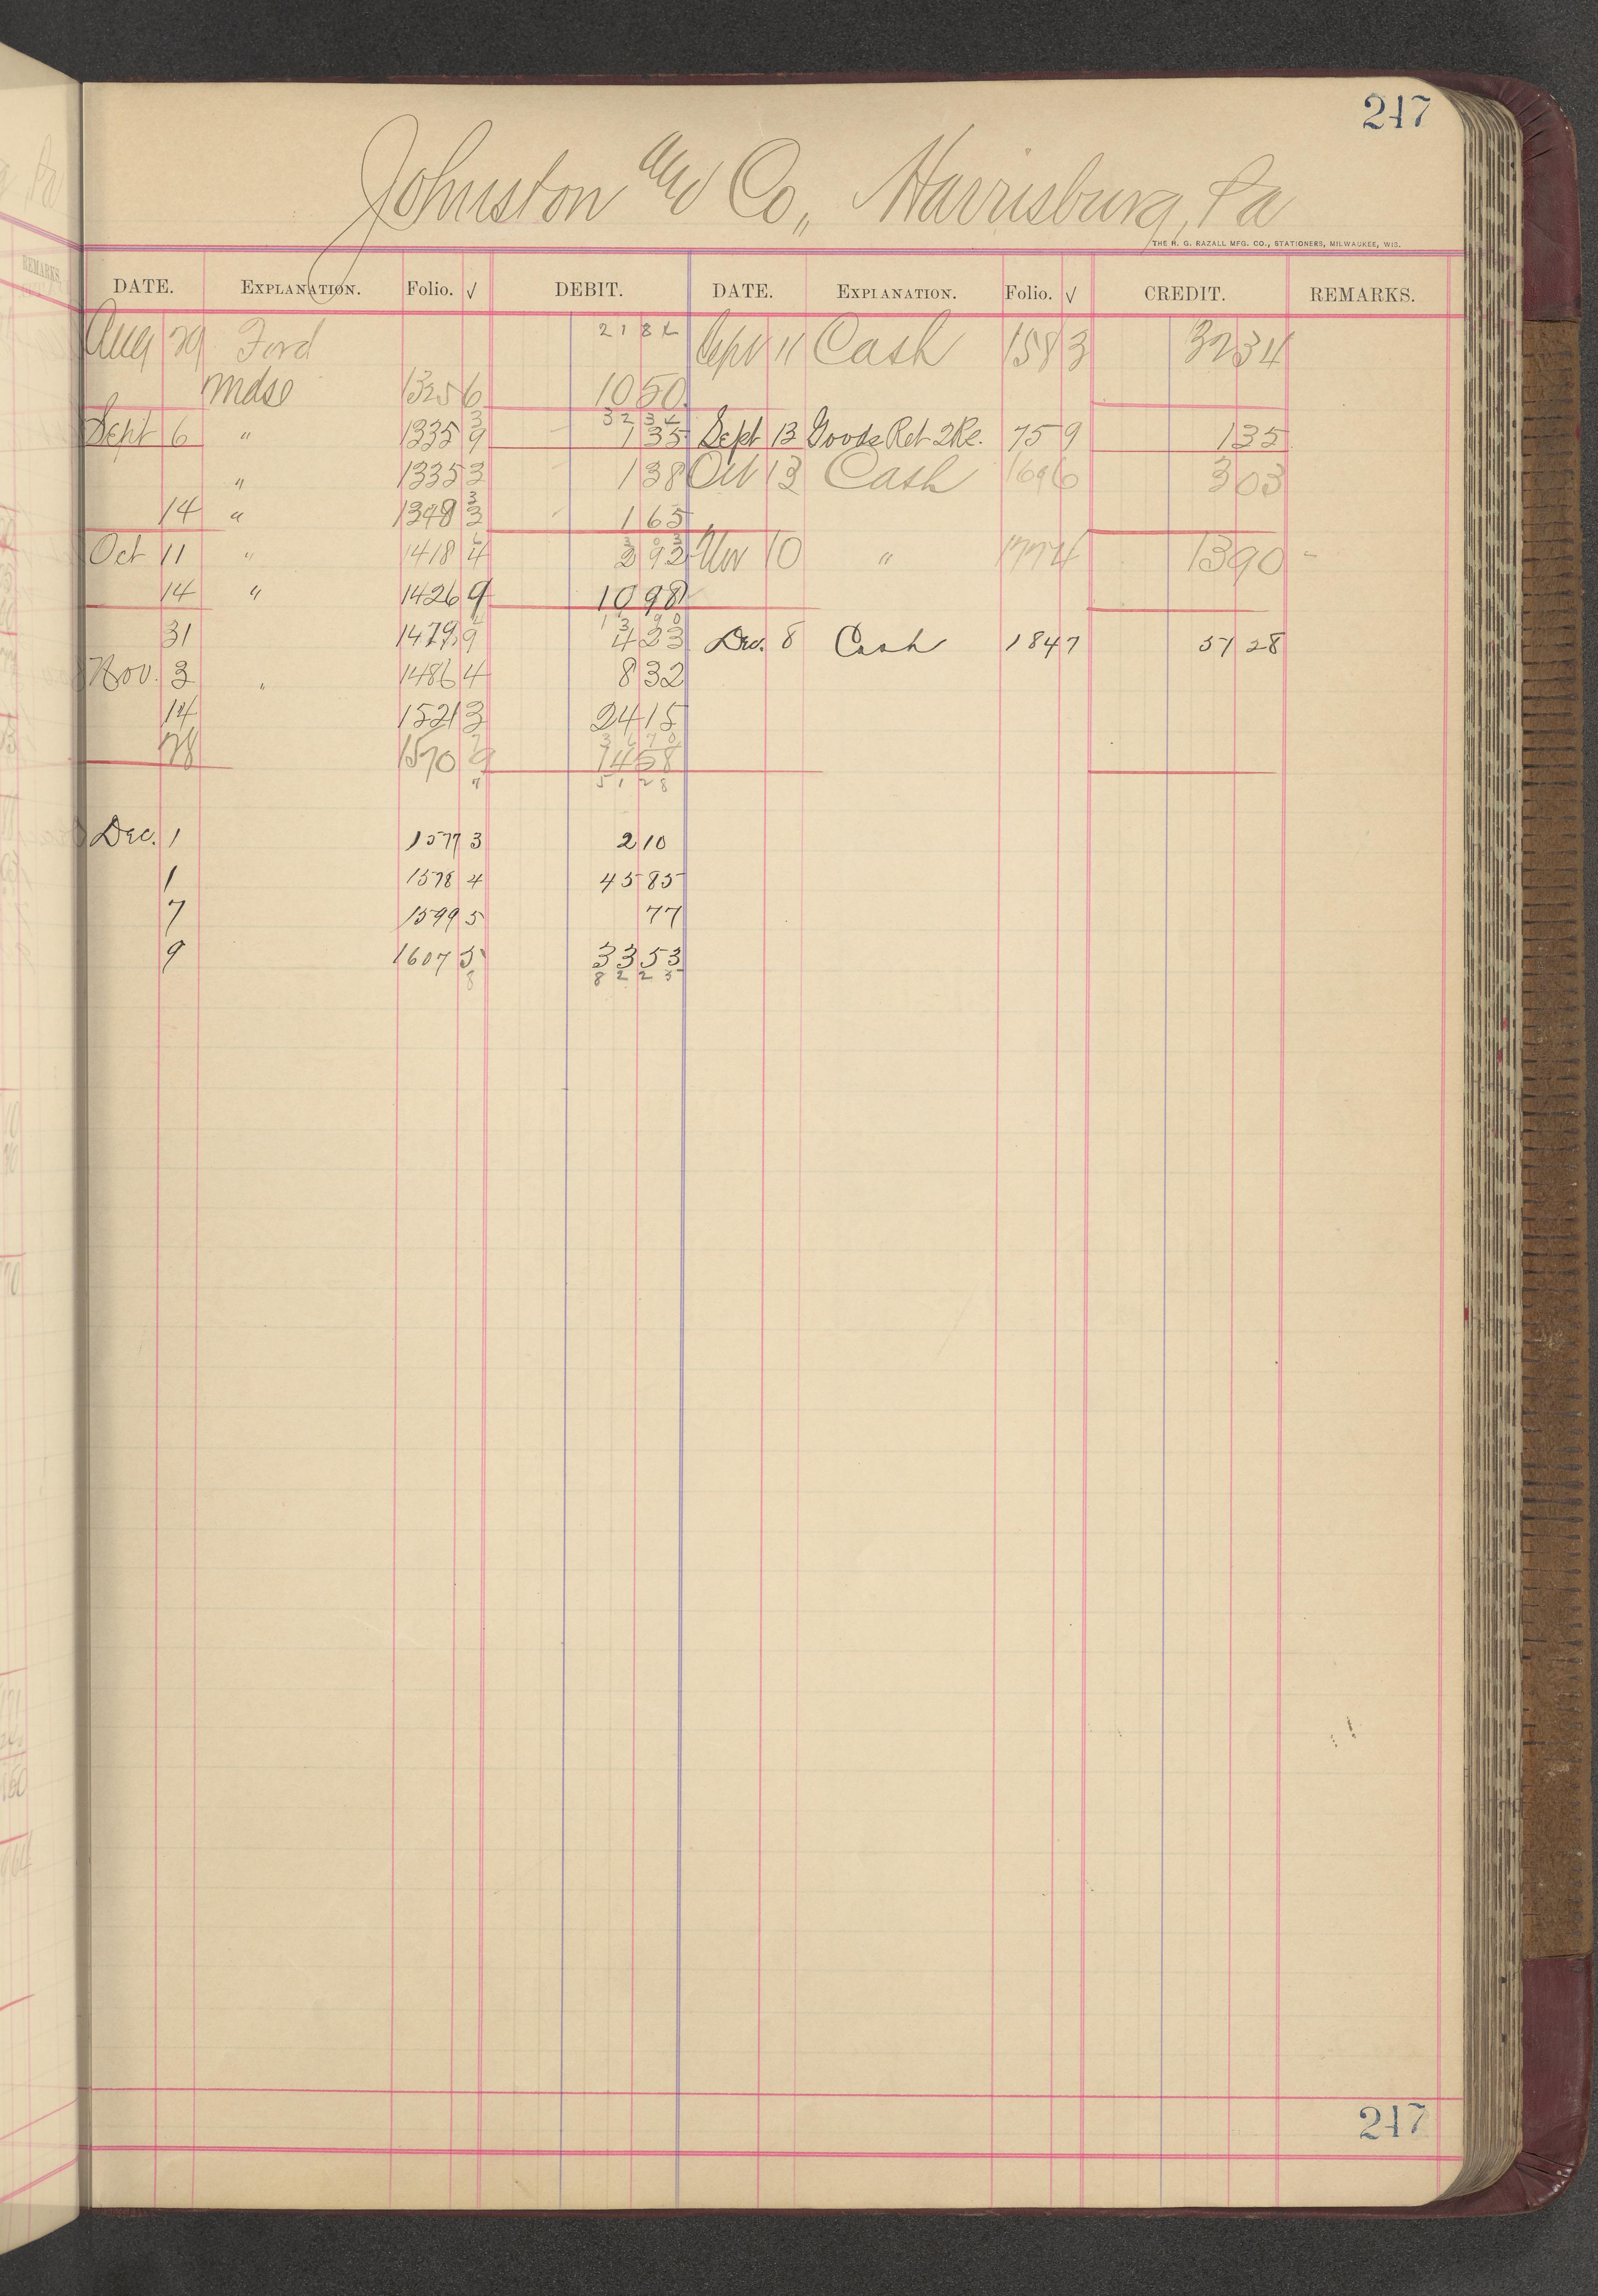 247
Johnston and Co,, Harrisburg, Pa
THE H. G. RAZALL MFG. CO., STATIONERS, MILWAUKEE, WIS.
DATE. EXPLANATION. Folio. √ DEBIT. DATE. EXPLANATION. Folio. √ CREDIT. REMARKS.
Aug 29 Ford 2184 Sept 11 Cash 1583 3234
Mdse 1325 6 1050
3 3234
Sept 6 " 1335 9 135 Sept 13 Goods Ret 2Rc. 759 135
" 1335 3 138 Oct 13 Cash 1696 303
14 " 1349 3 165
3 303
Oct 11 " 1418 4 292 Nov 10 " 1774 1390 -
14 " 1426 9 1098
1390
31 1479 9 423 Dec. 8 Cash 1847 5128
Nov. 3 " 1486 4 832
14 1521 3 2415
3670
28 1570 9 1458
5128
Dec. 1 1577 3 210
1 1578 4 4585
7 1599 5 77
9 1607 5 3353
8 8225
247